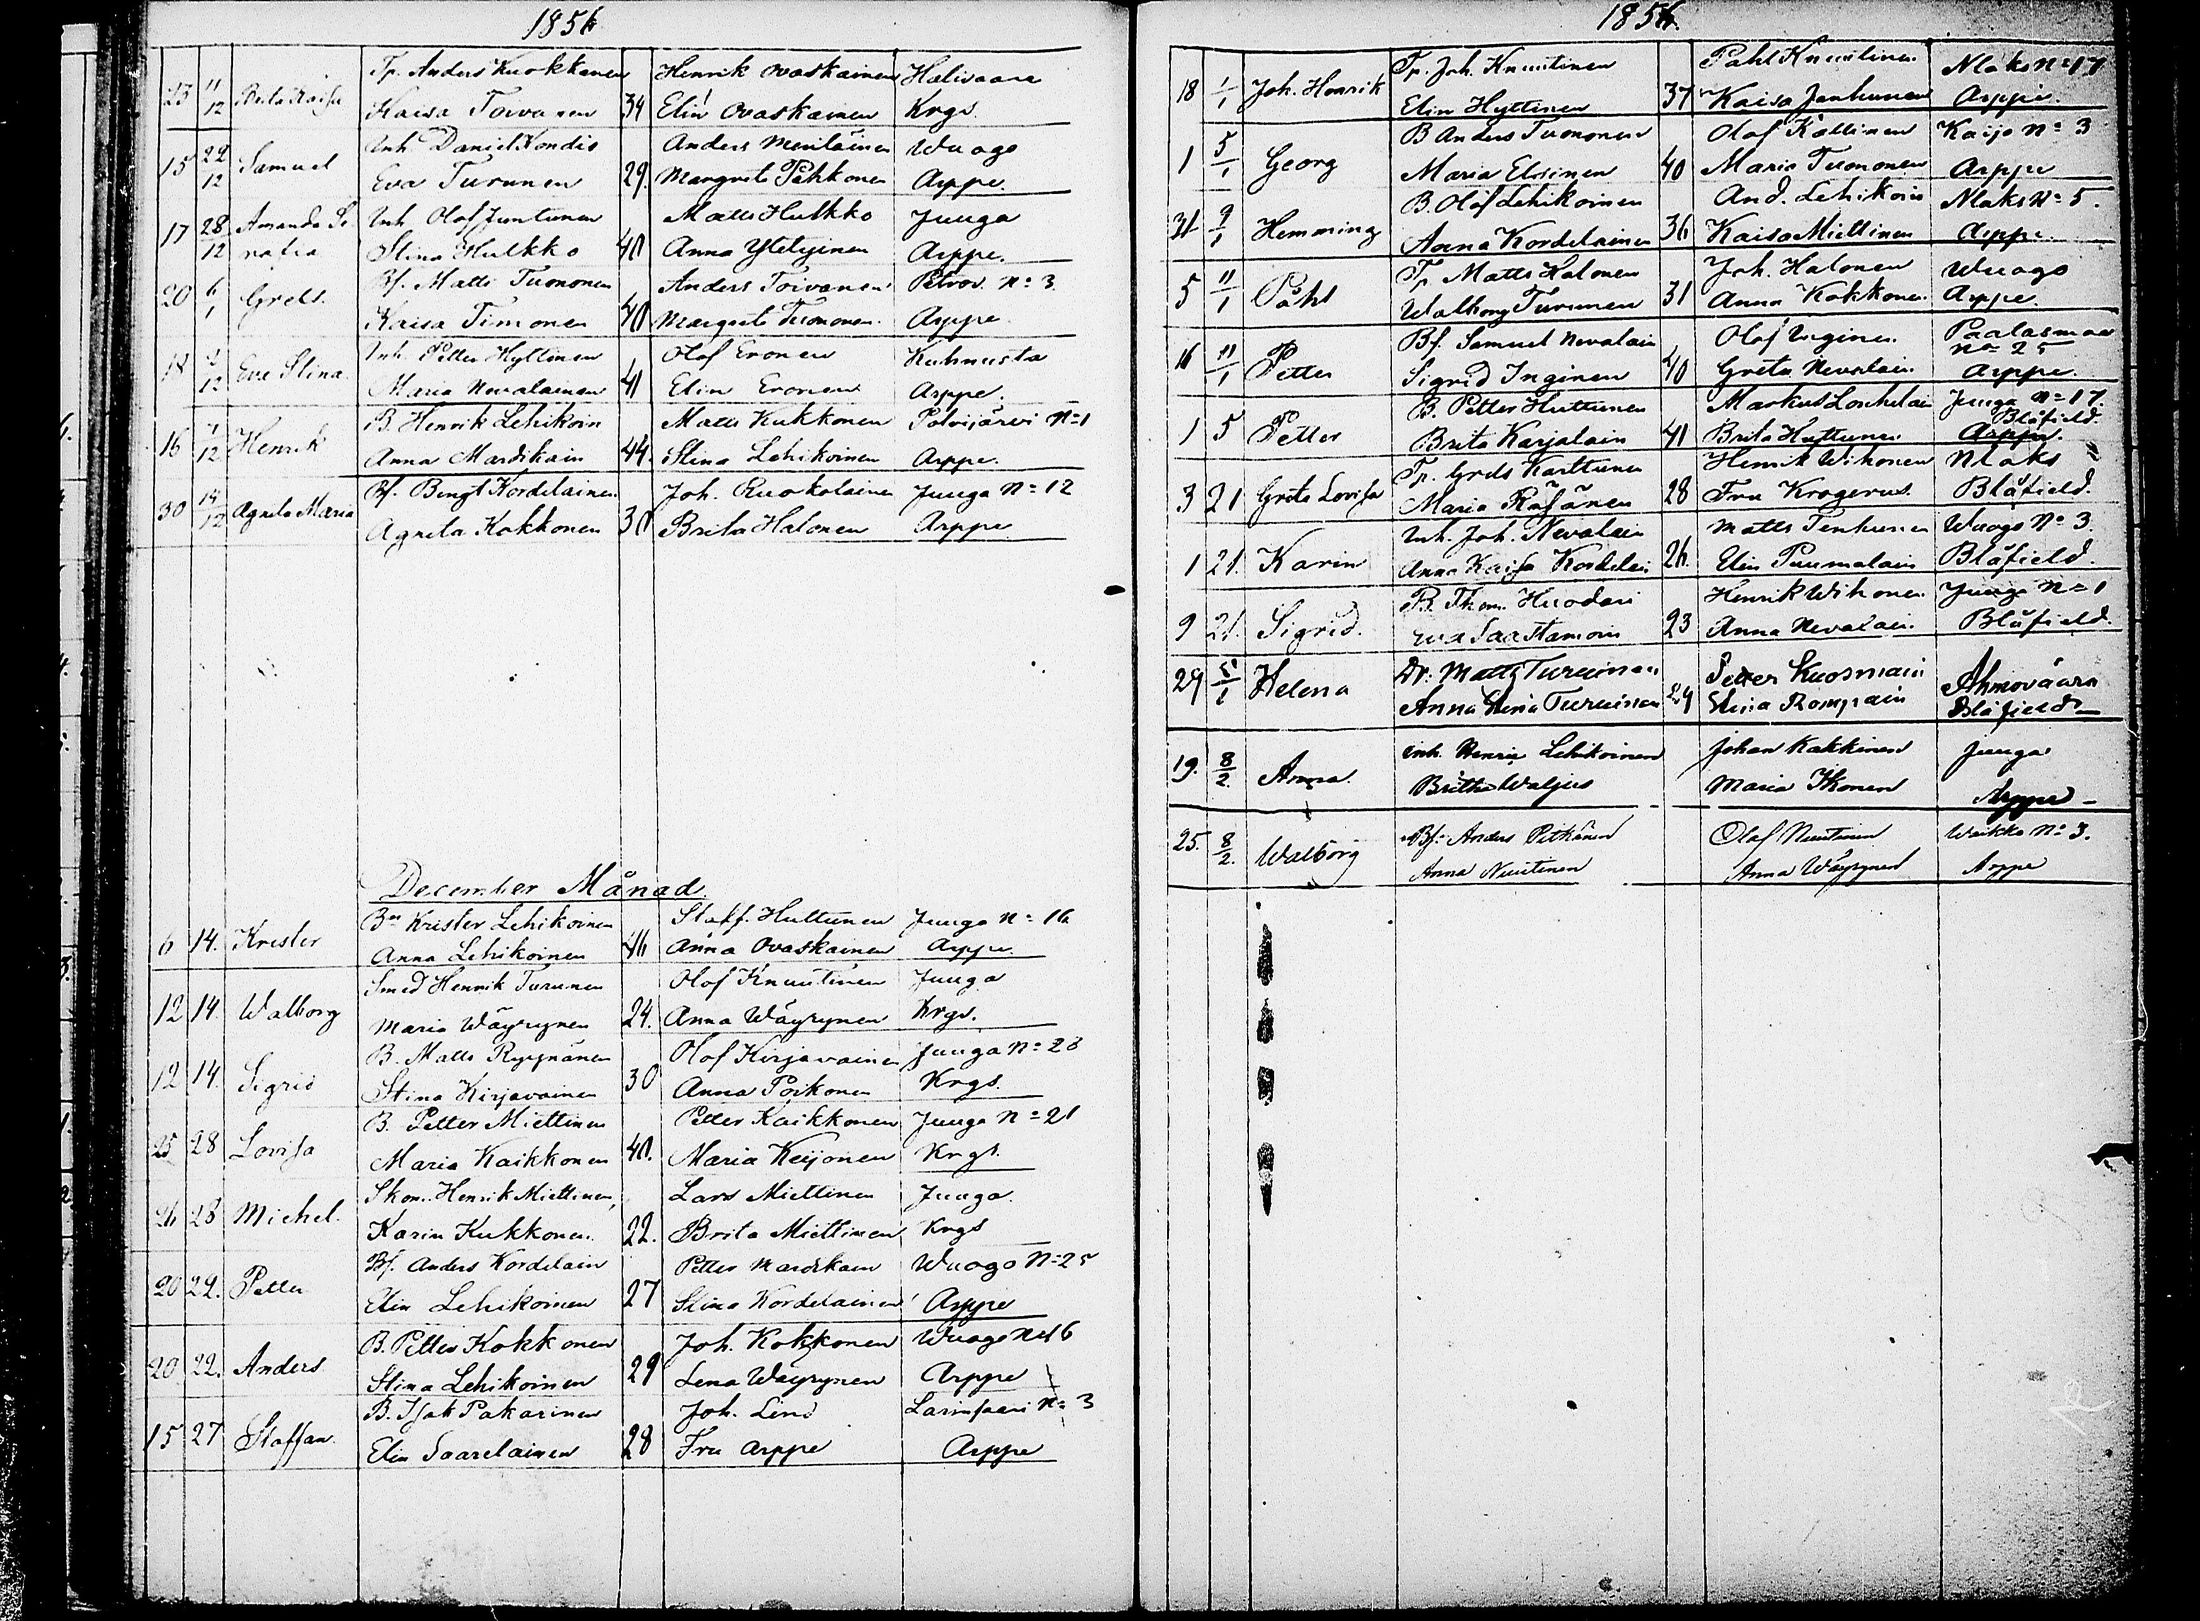 1856
23 11/12 Brita Kaisa Tp. Anders Kuokkanen Henrik Ovaskainen Halivaara
Kaisa Toivanen 34 Elin Ovaskainen Krgs.
15 22/12 Samuel Inh. Daniel Kondie Anders Meriläinen Wuogo
Eva Turunen 29. Margreta Pehkonen Arppe.
17 28/12 Amanda Se Inh. Olof Juntunen Matts Hulkko Juuga
rafia Stina Hulkko 40 Anna Arppe.
20 6/1 Grels. Bf. Matts Tuononen Anders Toivanen Petrov. N=3.
Kaisa Timonen 40 Margreta Tuononen Arppe
18 Eva Stina. Inh. Petter Hyttinen Olof Eronen Kuhnusta
Maria Nevalainen 41 Elin Eronen Arppe.
16 Henrik B. Henrik Lehikoin Matts Kukkonen Polvijärvi N=1
Anna Mardikain 44. Stina Lehikoinen Arppe.
30 14/12 Agneta Maria Bf. Bengt Kordelainen Joh. Ruokolainen Juuga N=12
Agneta Kokkonen 30 Brita Halonen Arppe.
December Månad.
6 14. Krister Bn Krister Lehikoinen Staff. Huttunen Juuga N=16
Anna Lehikoinen 46 Anna Ovaskainen Arppe.
12 14. Walborg Smed Henrik Turunen Olof Knuutinen Juuga
Maria Wäyrynen 24. Anna Wäyrynen Krgs.
12 14. Sigrid B. Matts Ryynänen Olof Kirjavainen Juuga N=23
Stina Kirjavainen 30 Anna Poikonen Krgs.
25 28 Lovisa B. Petter Miettinen Petter Kaikkonen Juuga N=21
Maria Kaikkonen 40. Maria Keijonen Krgs.
26 28 Michel. Skom. Henrik Miettinen, Lars Miettinen Juuga.
Karin Kukkonen. 22. Brita Miettinen Krgs
20 22. Petter Bf. Anders Kordelain Petter Mardikain Wuogo N=25
Elin Lehikoinen 27 Stina Kordelainen Arppe
20 22. Anders. B. Petter Kokkonen Joh. Kokkonen Wuogo N=16
Stina Lehikoinen 29 Lena Wäyrynen Arppe
15 27 Staffan. B. Isak Pakarinen Joh. Lind Larinsaari N=3
Elin Saarelainen 28 Fru Arppe Arppe
1856.
18 1/1 Joh. Henrik Tp. Joh. Knuutinen Påhl Knuutinen Nlaks N=17
Elin Hyttinen 37 Kaisa Janhunen Arppe.
1 5/1 Georg B Anders Tuononen Olof Kallinen Kaijo N=3
Maria Eloinen 40 Maria Tuononen Arppe
31 9/1 Hemming B. Olof Lehikoinen And. Lehikoin Nlaks N=5.
Anna Kordelainen 36 Kaisa Miettinen Arppe.
5 11/1 Påhl Tp. Matts Halonen Joh. Halonen Wuogo
Walborg Turunen 31 Anna Kokkonen Arppe
16 11/1 Petter Bf. Samuel Nevalain Olof Inginen Paalasmaa
N=25
Sigrid Inginen 40 Greta Nevalain Arppe.
1 5 Petter B. Petter Huttunen Markus Juuga N=17.
Blåfield.
Brita Karjalain 41 Brita Huttunen Arppe.
3 21 Greta Lovisa Tp. Grels Karttunen Henrik Wihonen Nlaks
Maria Räsänen 28 Fru Krogerus. Blåfield.
1 21. Karin Inh. Joh. Nevalain Matts Tenhunen Wuogo N=3.
Anna Kaisa Kordelai 26. Elin Puumalain Blåfield.
9 21. Sigrid. B. Thom. Huodari Henrik Wihonen Juuga N=1
Eva Saastamoin 23 Anna Nevalain. Blåfield.
29 Helena Dr. Matts Turuinen Petter Kuosmain Ahmovaara
Anna Stina Turuinen 29 Stina Rompain Blåfield
19. 8/2. Anna. Inh. Henric Lehikoinen Johan Kakkinen Juuga
Britha Waljus Maria Ikonen Arppe
25. 8/2. Walborg Bf. Anders Pitkänen Olof Nuutinen Waikko N=3.
Anna Nuutinen Anna Wäyrynen Arppe